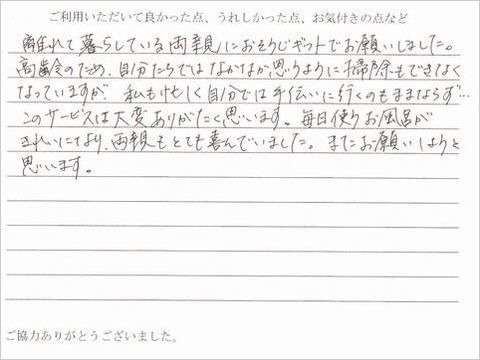 ご利用いただいて良かった点、うれしかった点、お気付きの点など
離れて暮らしている両親におそうじギフトでお願いしました。
高齢のため、自分たちではなかなか思うように掃除もできなく
なっていますが、私も忙しく自分では手伝いに行くのもままならず…
このサービスは大変ありがたく思います。毎日使うお風呂が
きれいになり、両親もとても喜んでいました。またお願いしようと
思います。
ご協力ありがとうございました。